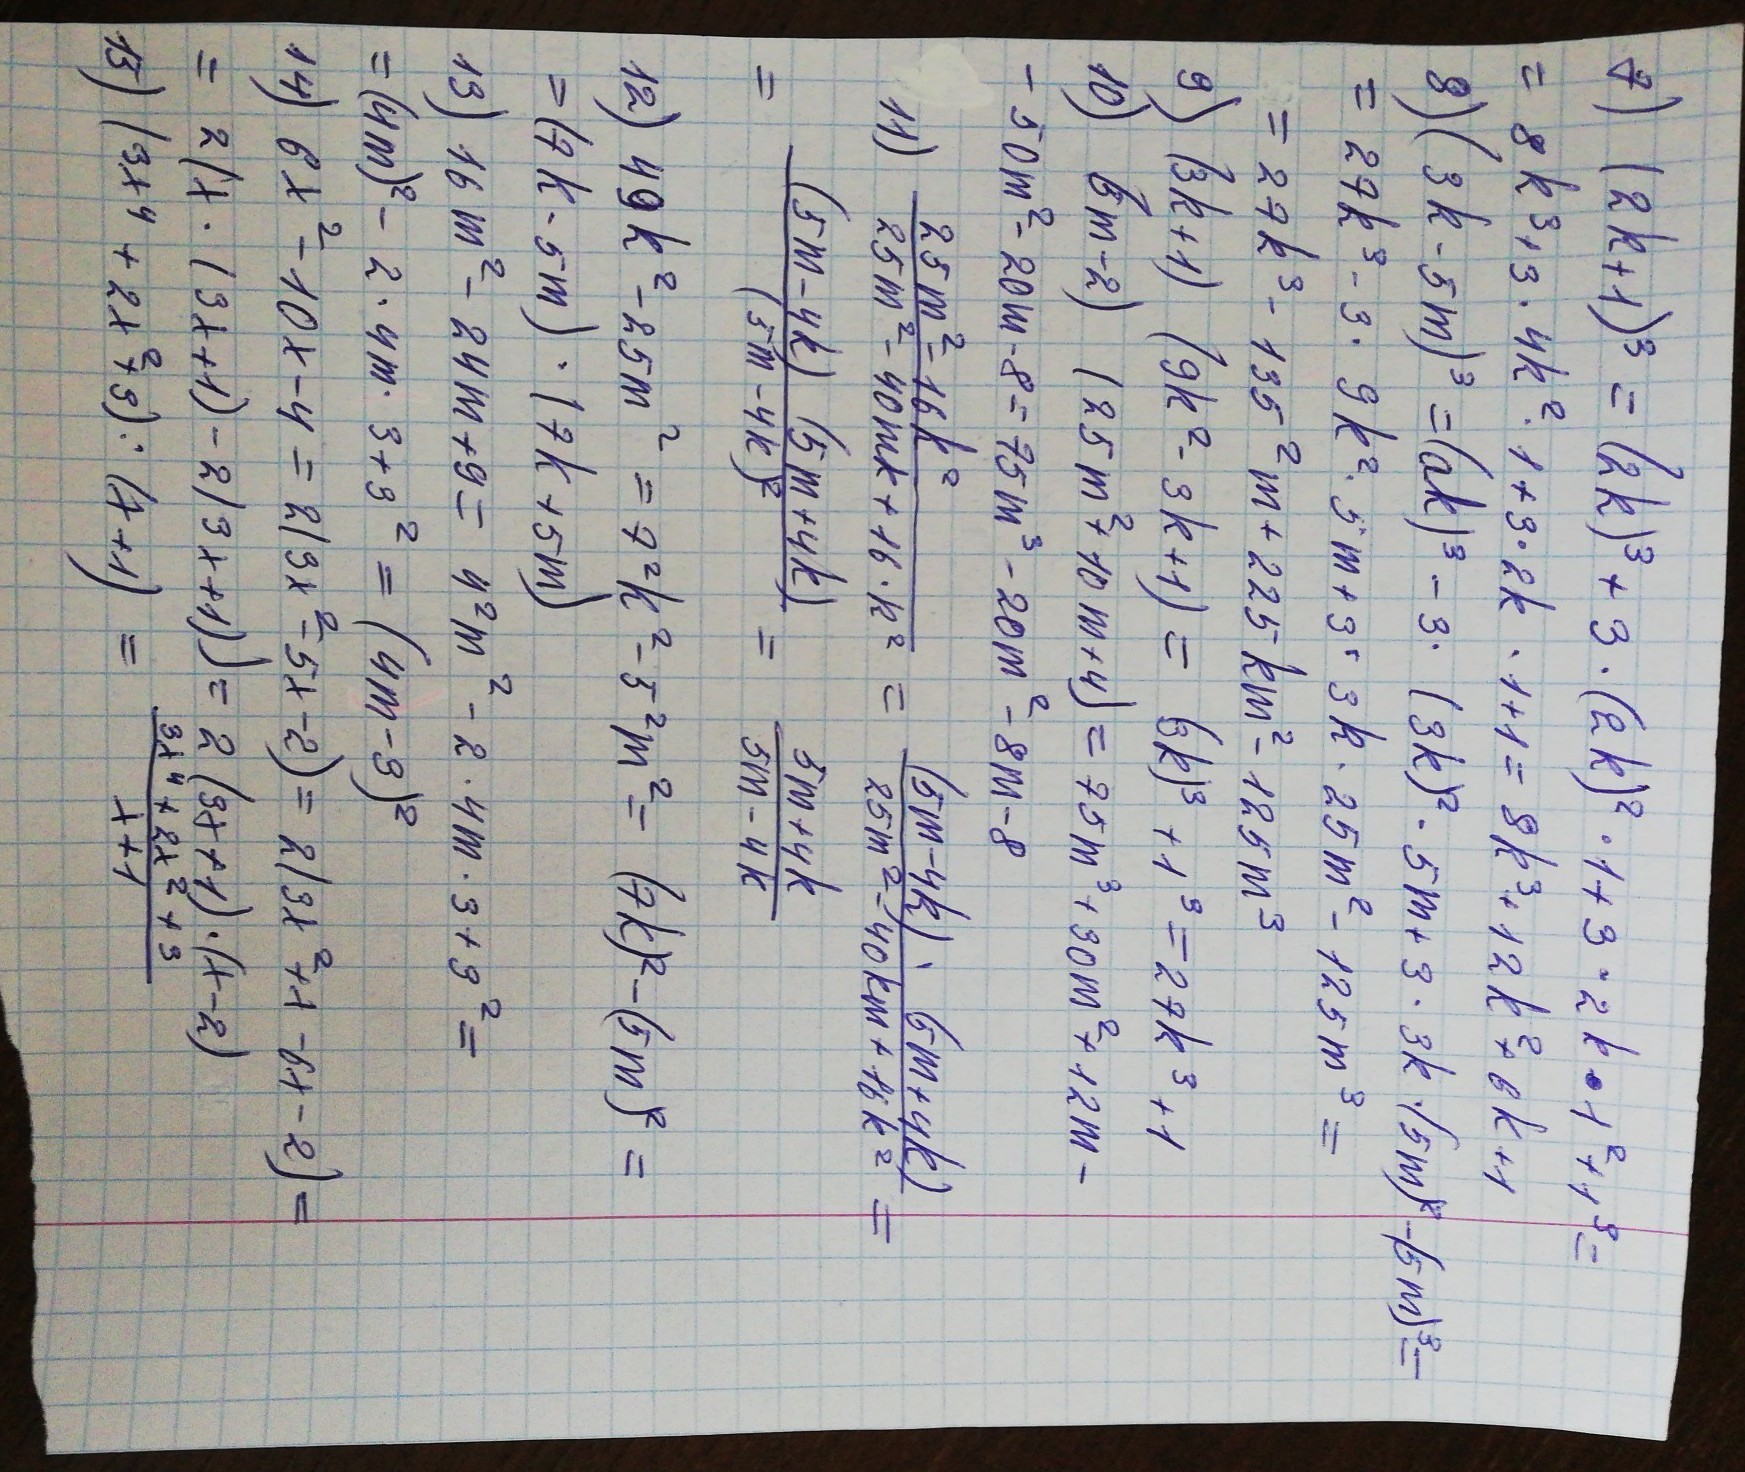 7) (2k+1)³ = (2k)³ + 3·(2k)²·1 + 3·2k·1² + 1³ =
= 8k³ + 3·4k²·1 + 3·2k·1 + 1 = 8k³ + 12k² + 6k + 1
8) (3k - 5m)³ = (ak)³ - 3·(3k)²·5m + 3·3k·(5m)² - (5m)³ =
= 27k³ - 3·9k²·5m + 3·3k·25m² - 125m³ =
= 27k³ - 135²m + 225km² - 125m³
9) (3k+1) (9k² - 3k + 1) = (3k)³ + 1³ = 27k³ + 1
10) (5m-2) (25m² + 10m + 4) = 75m³ + 30m² + 12m -
- 50m² - 20m - 8 = 75m³ - 20m² - 8m - 8
11) 25m² - 16k² / 25m² - 40mk + 16·k² = (5m-4k)·(5m+4k) / 25m² - 40km + 16k² =
= (5m-4k) (5m+4k) / (5m-4k)² = 5m+4k / 5m-4k
12) 49k² - 25m² = 7²k² - 5²m² = (7k)² - (5m)² =
= (7k - 5m)·(7k + 5m)
13) 16m² - 24m + 9 = 4²m² - 2·4m·3 + 3² =
= (4m)² - 2·4m·3 + 3² = (4m-3)²
14) 6x² - 10x - 4 = 2(3x² - 5x - 2) = 2(3x² + 1 - 6x - 2) =
= 2(x·(3x+1) - 2(3x+1)) = 2(3x+1)·(x-2)
15) (3x⁴ + 2x² + 3) : (x+1) = 3x⁴ + 2x² + 3 / x+1